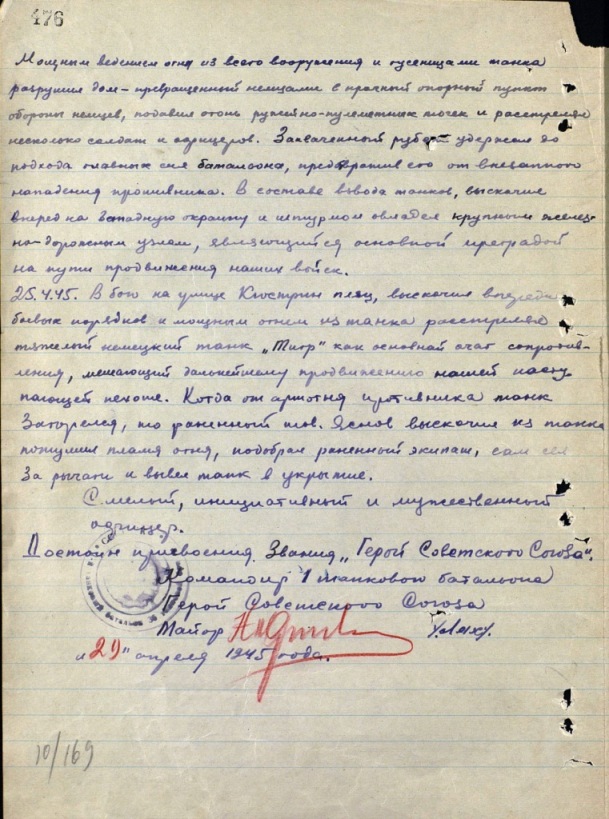 476
Мощным ведением огня из всего вооружения и гусеницами танка
разрушил дом – превращенный немцами в прочный опорный пункт
обороны немцев, подавил огонь ружейно-пулеметных точек и расстрелял
несколько солдат и офицеров. Захваченный рубеж удержал до
подхода главных сил баталиона, предотвратив его от внезапного
нападения противника. В составе взвода танков, выскочив
вперед на Западную окраину и штурмом овладел крупным желез-
но-дорожным узлом, являющийся основной преградой
на пути продвижения наших войск.
25.4.45. В бою на улице Кюстрин плац, выскочив впереди
боевых порядков и мощным огнем из танка расстрелял
тяжелый немецкий танк „Тигр" как основной очаг сопротив-
ления, мешающий дальнейшему продвижению нашей насту-
пающей пехоте. Когда от артогня противника танк
Загорелся, то раненный тов. выскочил из танка
потушил пламя огня, подобрал раненный экипаж, сам сел
За рычаги и вывел танк в укрытие.
Смелый, инициативный и мужественный
офицер.
Достоин присвоения Звания „Герой Советского Союза".
Командир 1 танкового батальона
Герой Советского Союза
Майор
„29" апреля 1945 года.
10/169